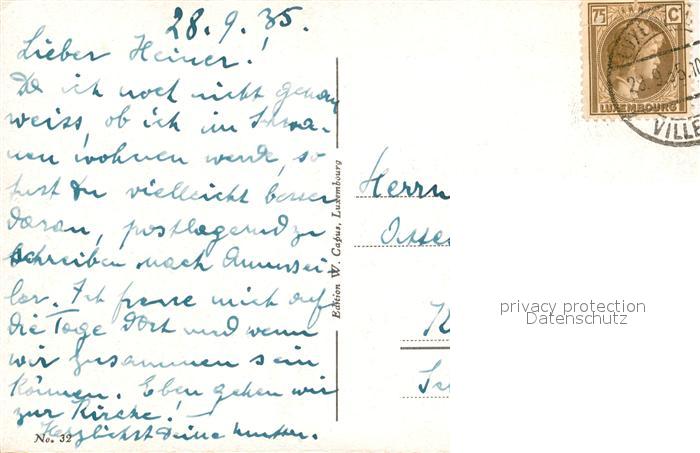 28.9.35.
Lieber Heiner!
Da ich noch nicht genau
weiss, ob ich im Schwa-
nen wohnen werde, so
tust Du vielleicht besser
daran, postlagernd zu
schreiben nach Ammersei-
ler. Ich freue mich auf
die Tage dort und wenn
wir zusammen sein
können. Eben gehen wir
zur Kirche! –
Herzlichst Deine Mutter.
No. 32
Edition W. Capus, Luxembourg
Herrn
75 C
LUXEMBOURG
VILLE
privacy protection
Datenschutz